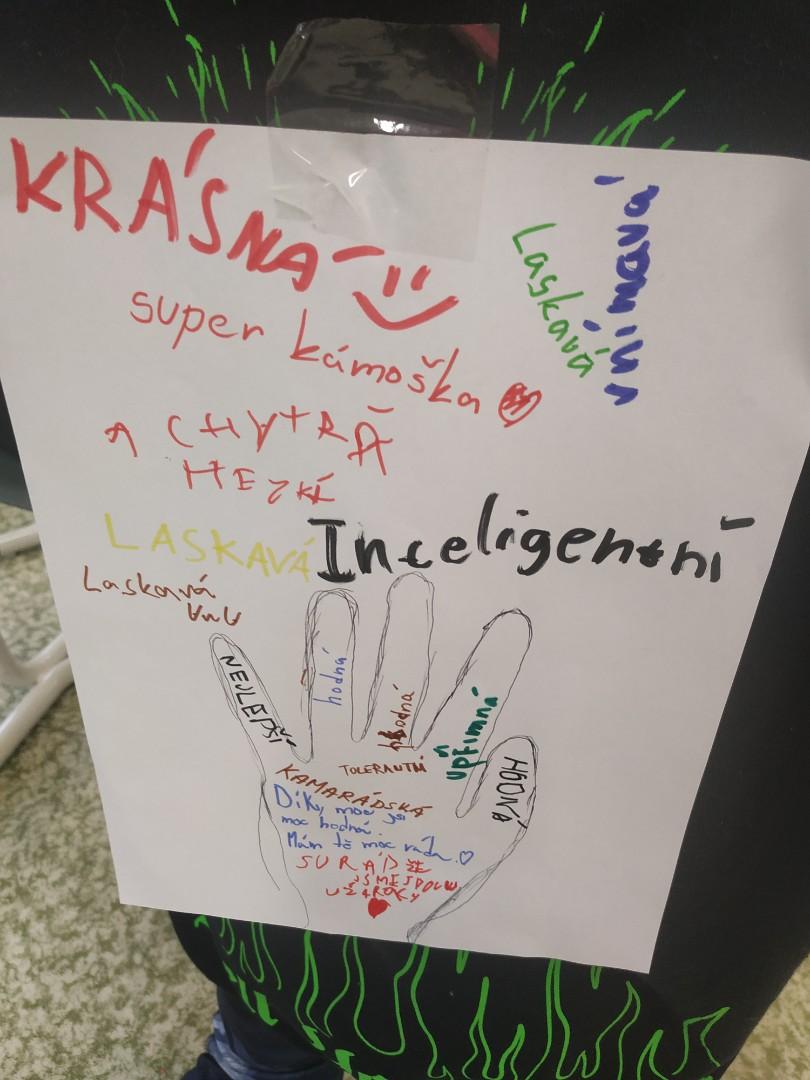 KRÁSNÁ
super kámoška
A CHYTRÁ
HEZKÁ
Laskavá
vnímavá
LASKAVÁ
Inteligentní
Laskavá
UwU
NEJLEPŠÍ
hodná
hodná
upřimná
HODNÁ
TOLERANTNÍ
KAMARÁDSKÁ
Díky, moc jsi
moc hodná.
Mám tě moc ráda.
SU RÁD ŽE
UŽ 4 ROKY